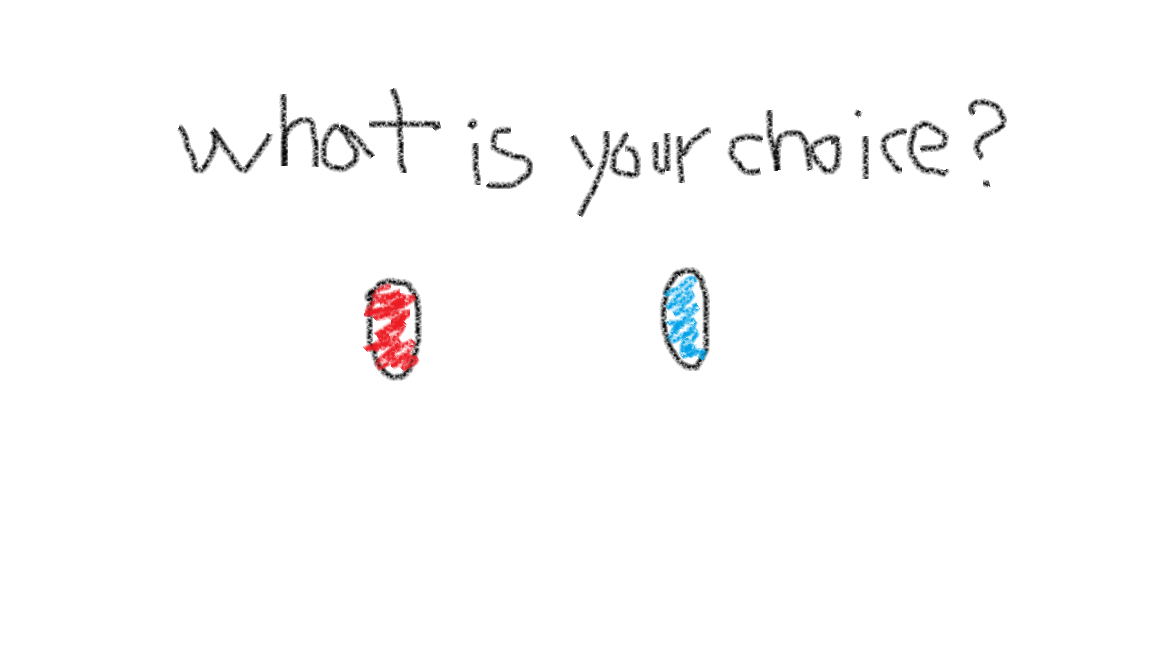 what is your choice?